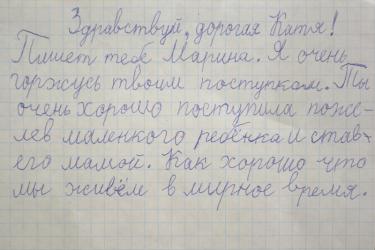 Здравствуй, дорогая Катя!
Пишет тебе Марина. Я очень
горжусь твоим поступком. Ты
очень хорошо поступила пожа-
лев маленкого ребёнка и став
его мамой. Как хорошо что
мы живём в мирное время.